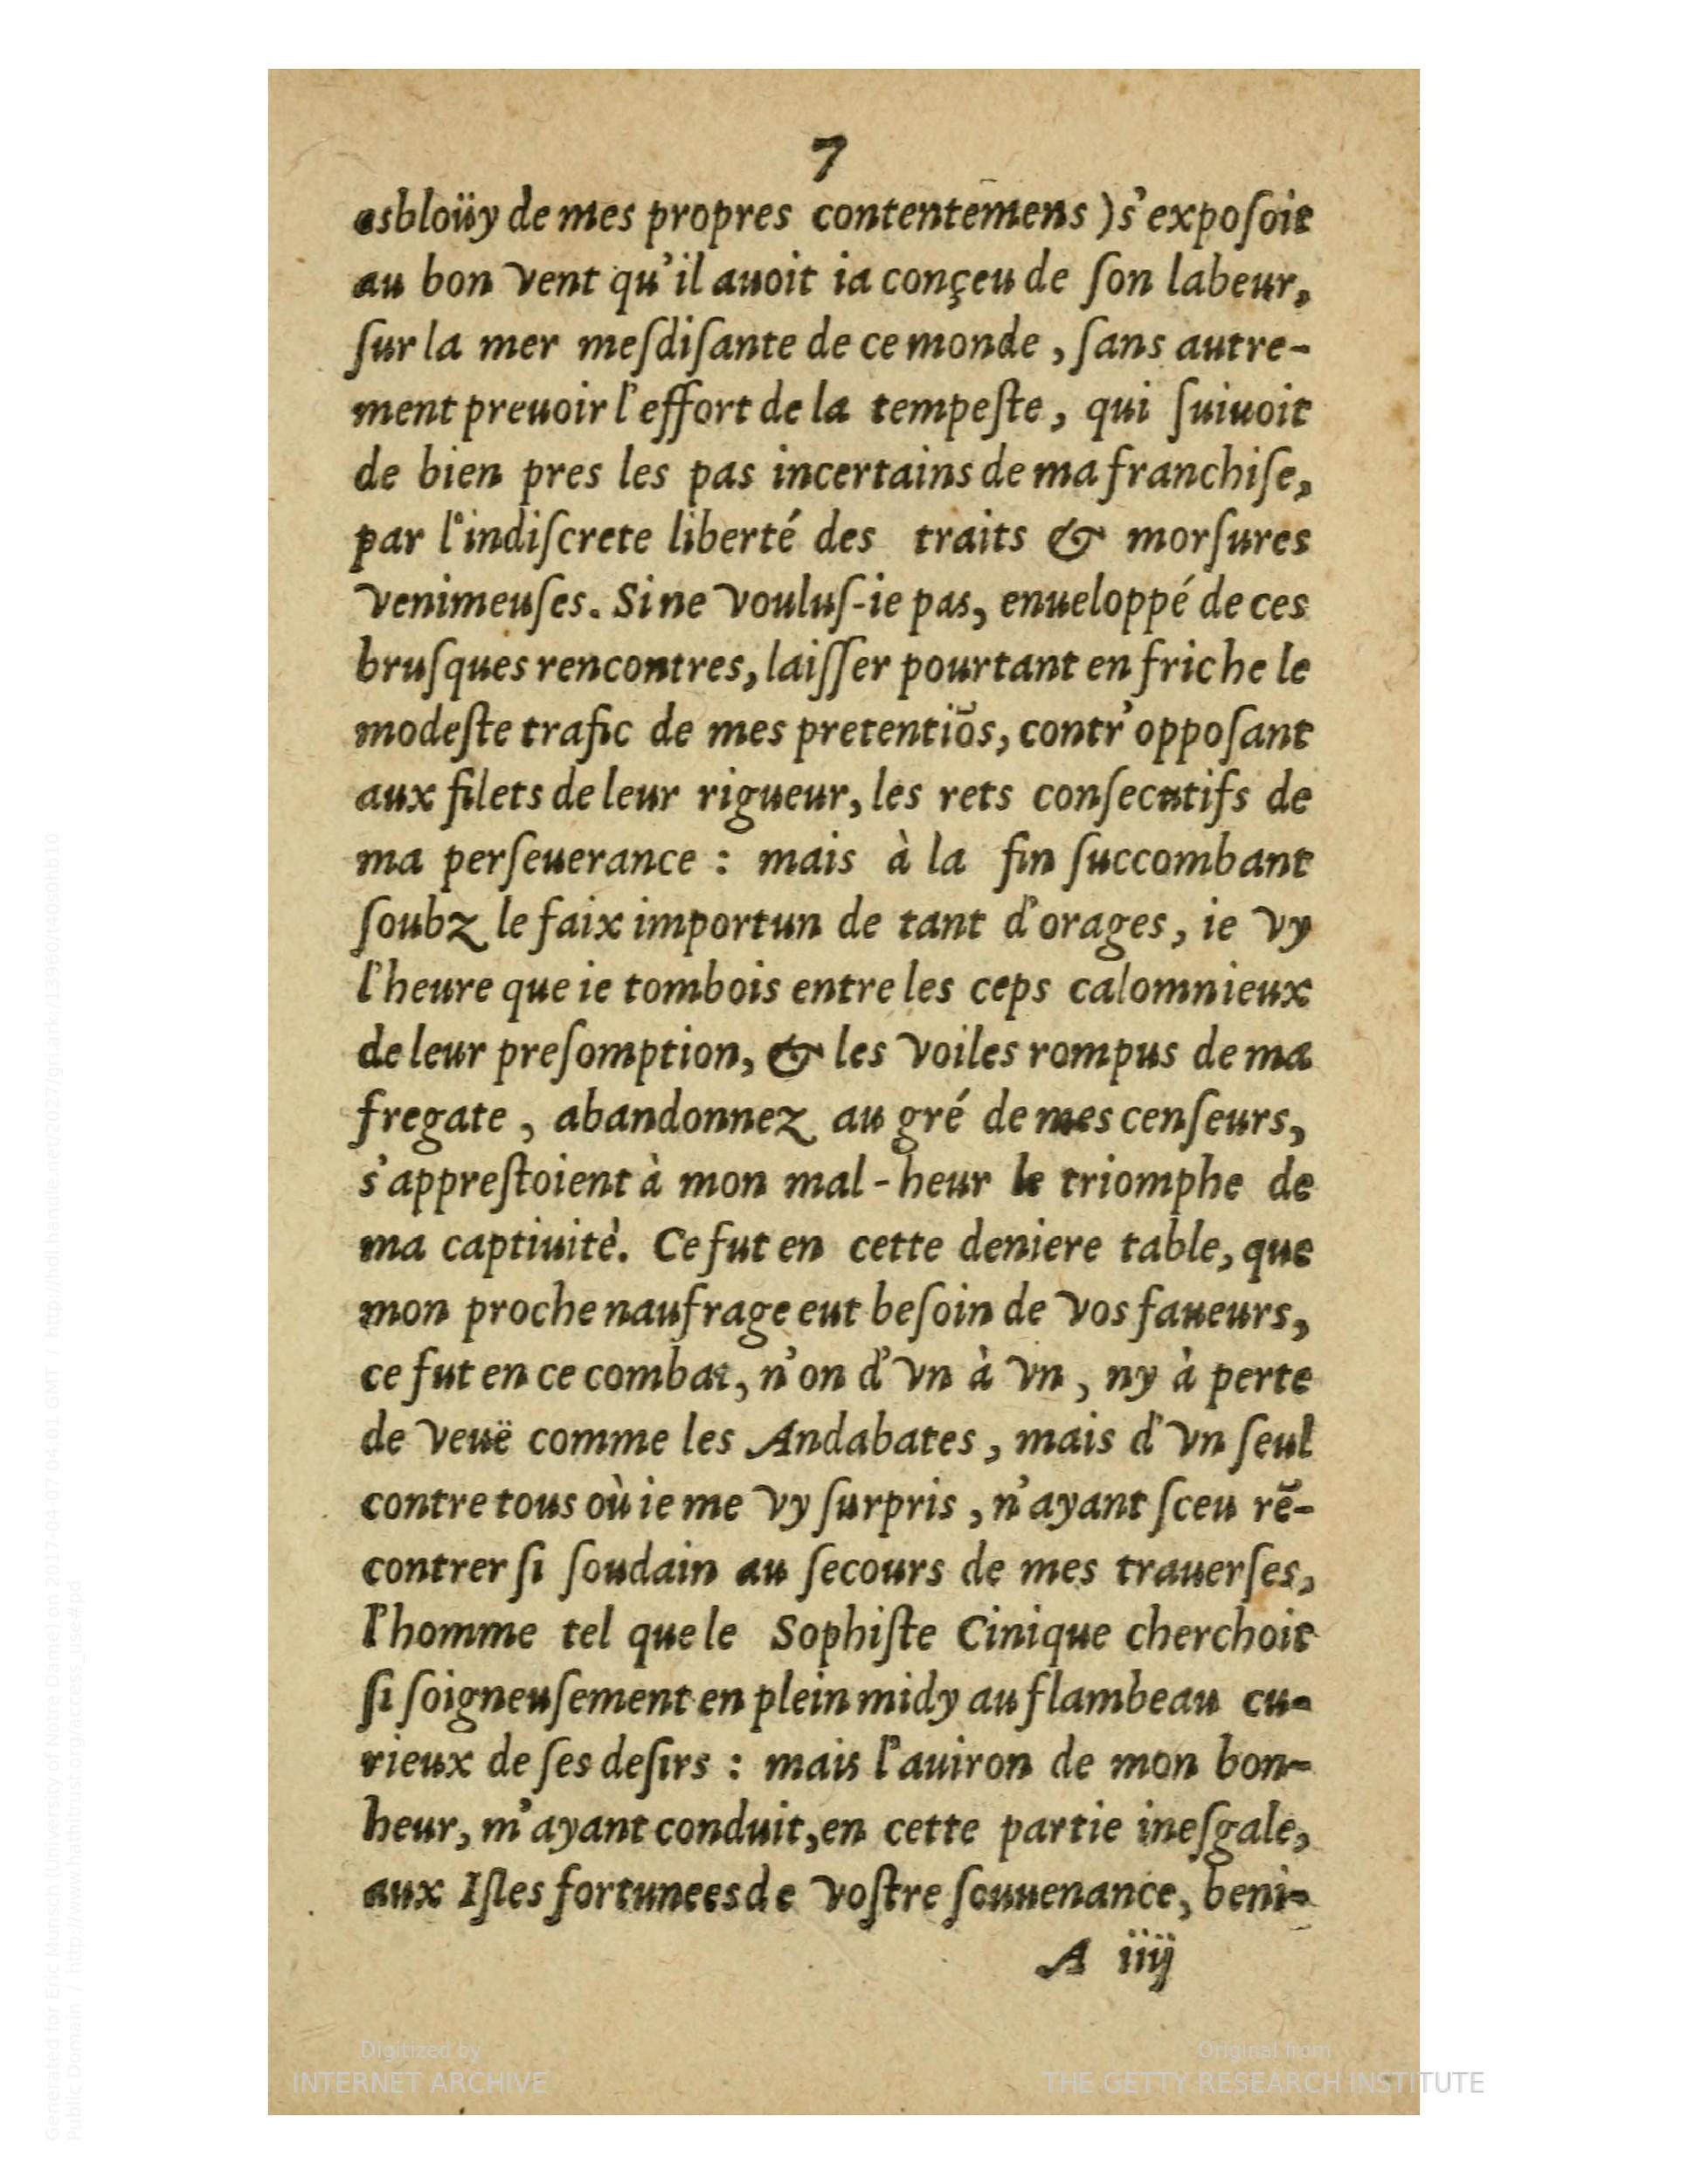 7
esbloüy de mes propres contentemens ) s'exposoit
au bon vent qu'il auoit ia conçeu de ſon labeur,
ſur la mer meſdiſante de ce monde , ſans autre-
ment preuoir l'effort de la tempeſte , qui ſuiuoit
de bien pres les pas incertains de ma franchiſe,
par l'indiſcrete liberté des traits & morſures
venimeuſes. Si ne vouluſ-ie pas, enueloppé de ces
bruſques rencontres, laiſſer pourtant en friche le
modeſte trafic de mes pretentiõs, contr'oppoſant
aux filets de leur rigueur, les rets conſecutifs de
ma perſeuerance : mais à la fin ſuccombant
ſoubz le faix importun de tant d'orages , ie vy
l'heure que ie tombois entre les ceps calomnieux
de leur preſomption, & les voiles rompus de ma
fregate , abandonnez au gré de mes cenſeurs,
s'appreſtoient à mon mal-heur le triomphe de
ma captiuitè. Ce fut en cette deniere table, que
mon proche naufrage eut beſoin de vos faueurs,
ce fut en ce combat, n'on d'vn à vn , ny à perte
de veuë comme les Andabates , mais d'vn ſeul
contre tous où ie me vy ſurpris , n'ayant ſceu rẽ-
contrer ſi ſoudain au ſecours de mes trauerſes,
l'homme tel que le Sophiſte Cinique cherchoit
ſi ſoigneuſement en plein midy au flambeau cu-
rieux de ſes deſirs : mais l'auiron de mon bon-
heur, m'ayant conduit, en cette partie ineſgale,
aux Iſles fortunees de voſtre ſouuenance, beni-
A iiij
Digitized by
INTERNET ARCHIVE
Original from
THE GETTY RESEARCH INSTITUTE
Generated for Eric Munsch (University of Notre Dame) on 2017-04-07 04:01 GMT / http://hdl.handle.net/2027/gri.ark:/13960/t40s0hb10
Public Domain / http://www.hathitrust.org/access_use#pd